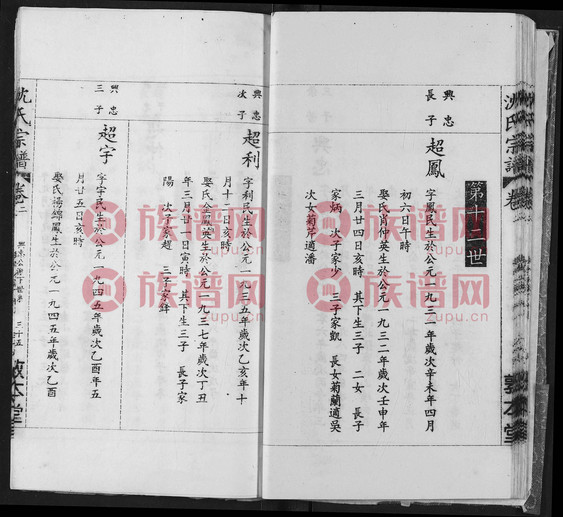 沈氏宗譜
卷
敦本堂
第十二世
興忠
長子
超鳳
字鳳民生於公元一九三一年歲次辛未年四月
初六日午時
娶氏肖仲英生於公元一九三二年歲次壬申年
三月廿四日亥時 其下生三子 二女 長子
家炳 次子家少 三子家凱 長女菊蘭適吳
次女菊芹適潘
興忠
次子
超利
字利民生於公元一九三五年歲次乙亥年十
月十二日亥時
娶氏余鳳英生於公元一九三七年歲次丁丑
年三月廿一日寅時 其下生三子 長子家
陽 次子家超 三子家鋒
興忠
三子
超字
字字民生於公元一九四五年歲次乙酉年五
月廿五日亥時
娶氏楊錦鳳生於公元一九四五年歲次乙酉
沈氏宗譜
卷二
三十五
敦本堂
族譜网
zupu.cn